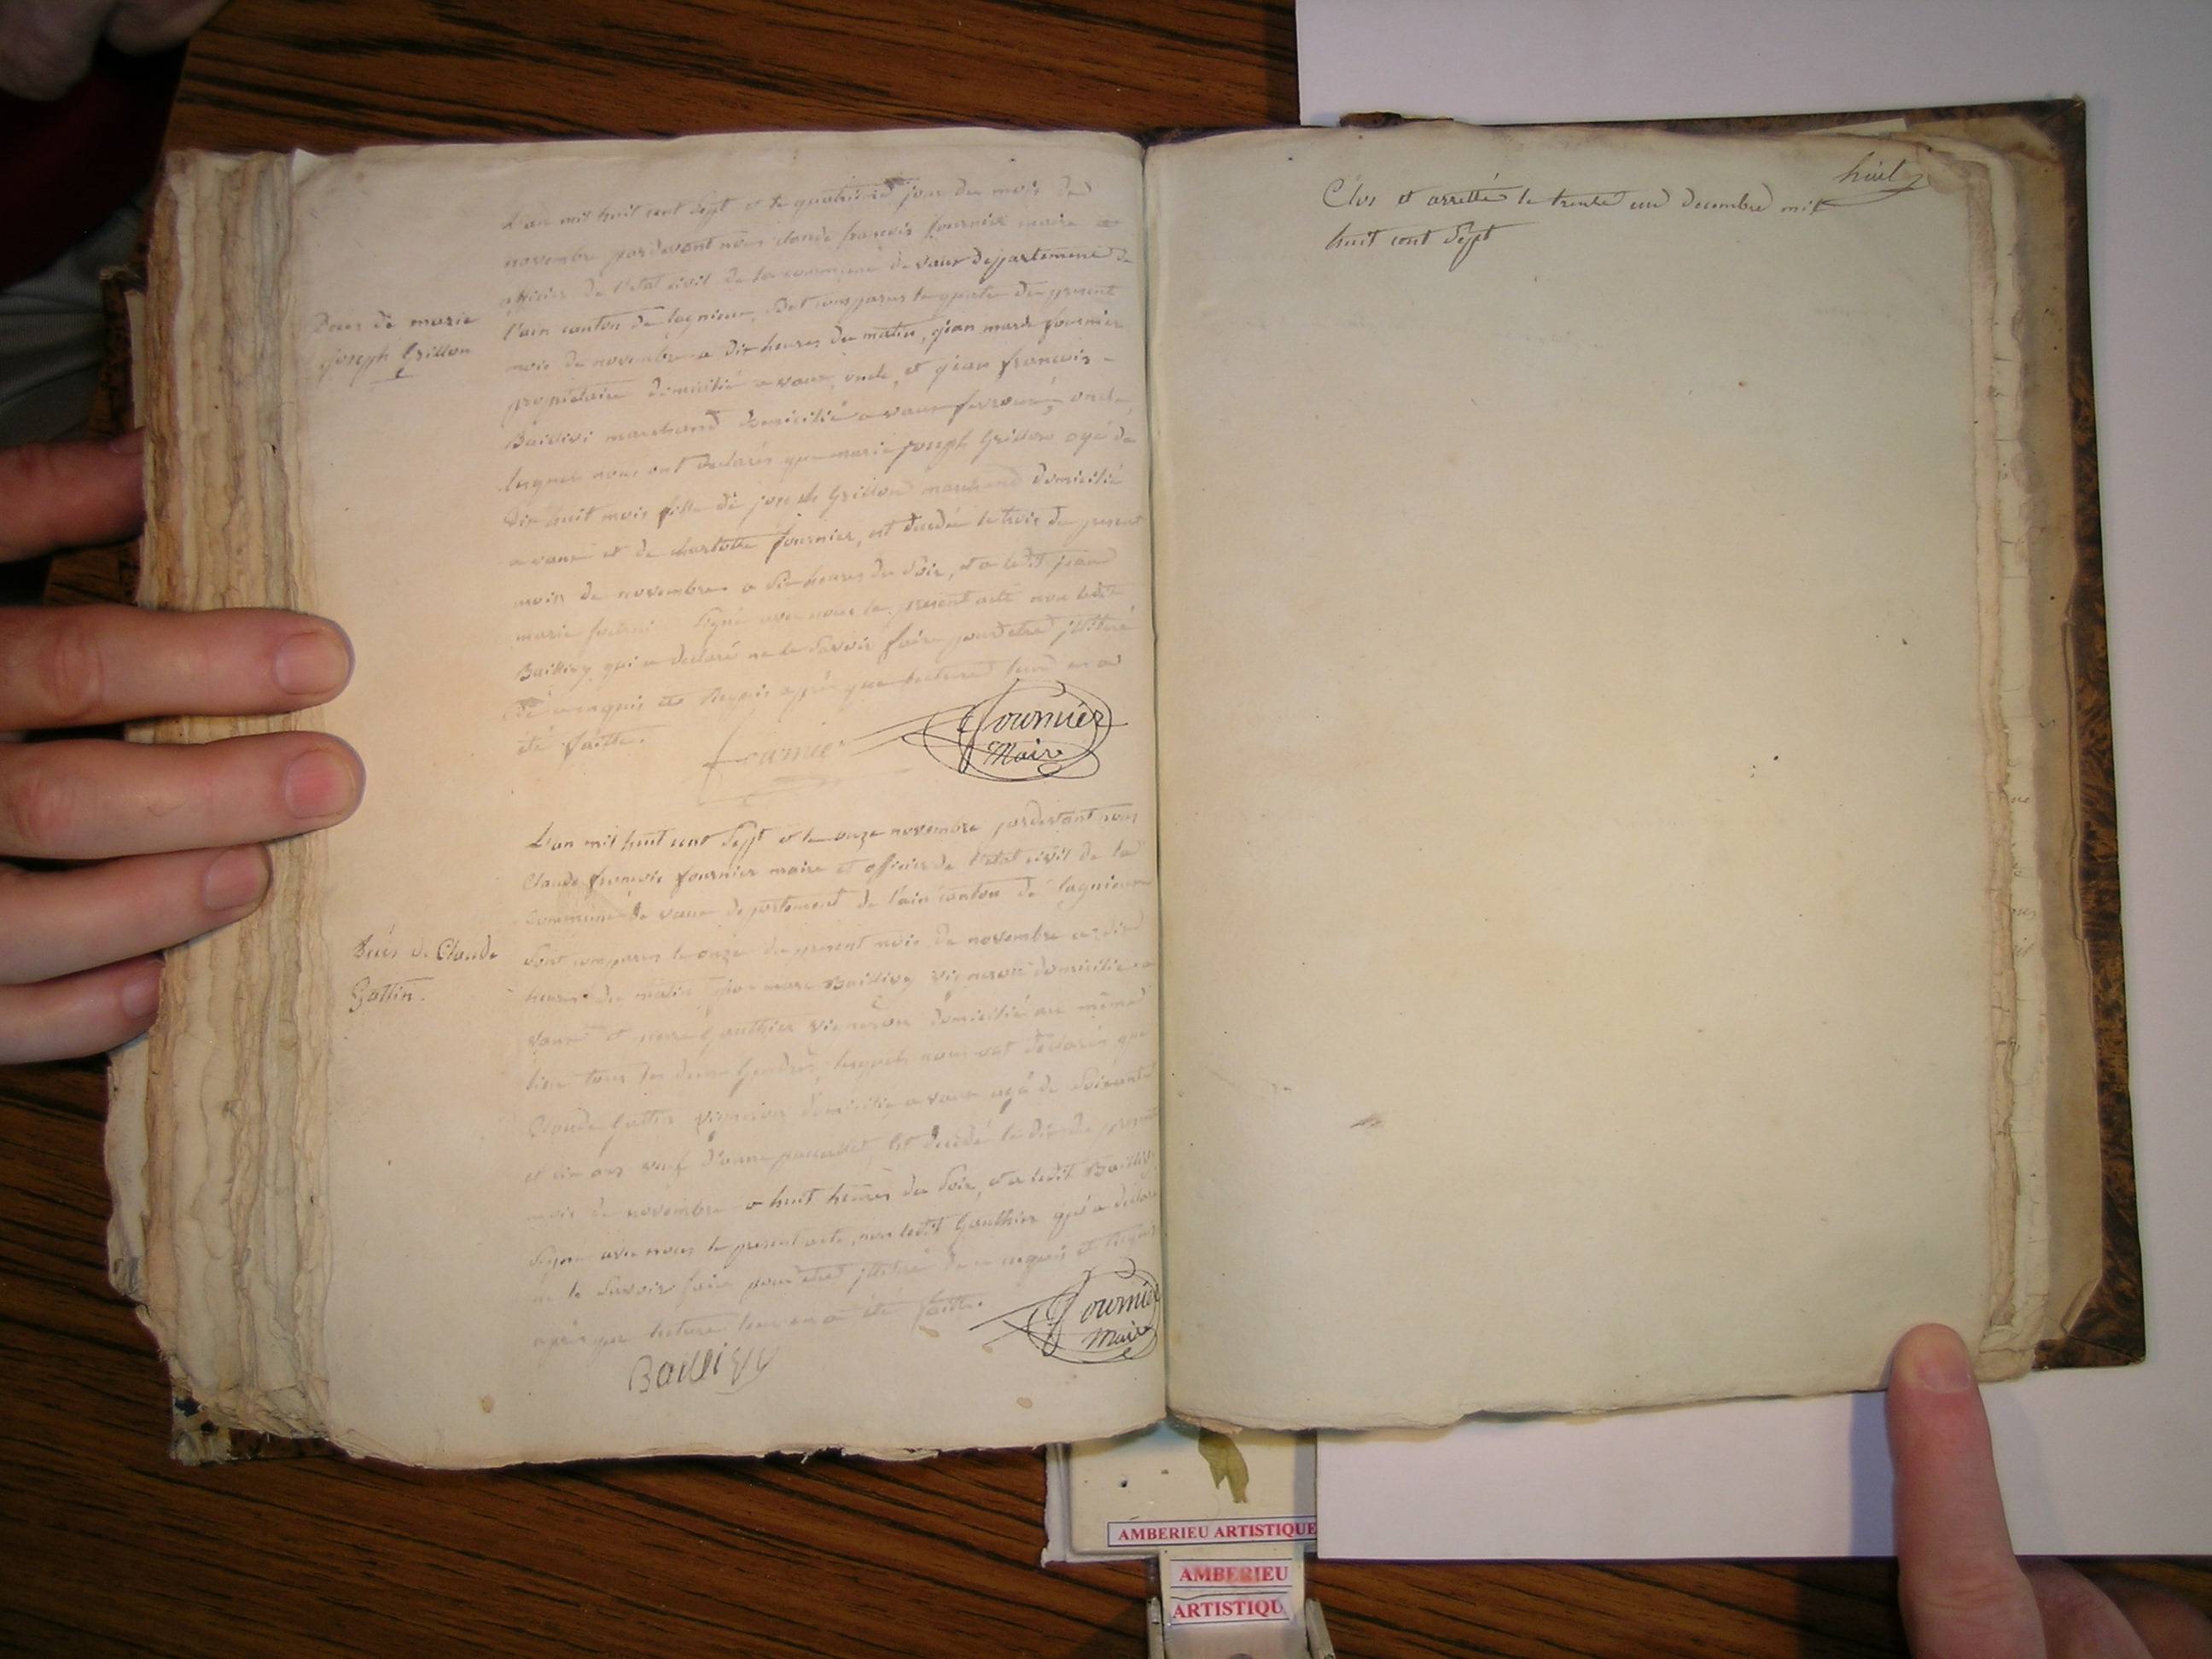 L'an mil huit cent Sept et le quatrième jour du mois de
novembre pardevant nous claude françois fournier maire et
officier de l'etat civil de la commune de vaux departement de
l'ain canton de lagnieux, Sont comparus le quatre du present
mois de novembre a dix heures du matin, jean marie fournier
propriétaire domicilié a vaux, oncle, et jean françois
Baillivi marchand domicilié a vaux oncle,
lesquels nous ont declarés que marie joseph Grillon agé de
Dix huit mois fille de joseph Grillon marchand domicilié
a vaux et de charlotte fournier, est decedée le trois du present
mois de novembre a Six heures du Soir, et a ledit jean
marie Signé avec nous le present acte non ledit
Baillivy qui a declaré ne le Savoir faire pour etre illitéré
de ce enquis et Requis après que lecture leur en a
été faitte.
Deces de marie
joseph Grillon
fournier
Fournier
Maire
L'an mil huit cent Sept et le onze novembre pardevant nous
Claude françois fournier maire et officier de l'etat civil de la
Commune de vaux departement de l'ain canton de lagnieux
Sont comparus le onze du present mois de novembre a dix
heures du matin jean marc Baillivy vigneron domicilié a
vaux et pierre Gauthier vigneron domicilié au même
lieu tous les deux Gendres, lesquels nous ont declarés que
Claude Gottin vigneron domicilié a vaux agé de Soixante
et six ans veuf d'anne est decedé le dix du present
mois de novembre a huit heures du Soir, et a ledit Baillivy
Signé avec nous le present acte, non ledit Gauthier qui a declaré
ne le Savoir faire pour etre illitéré de ce enquis et Requis
après que lecture leur en a été faitte.
Deces de Claude
Gottin.
Baillivy
Fournier
Maire
huit
Clos et arretté le trente un decembre mil
huit cent Sept
AMBERIEU ARTISTIQUE
AMBERIEU
ARTISTIQU